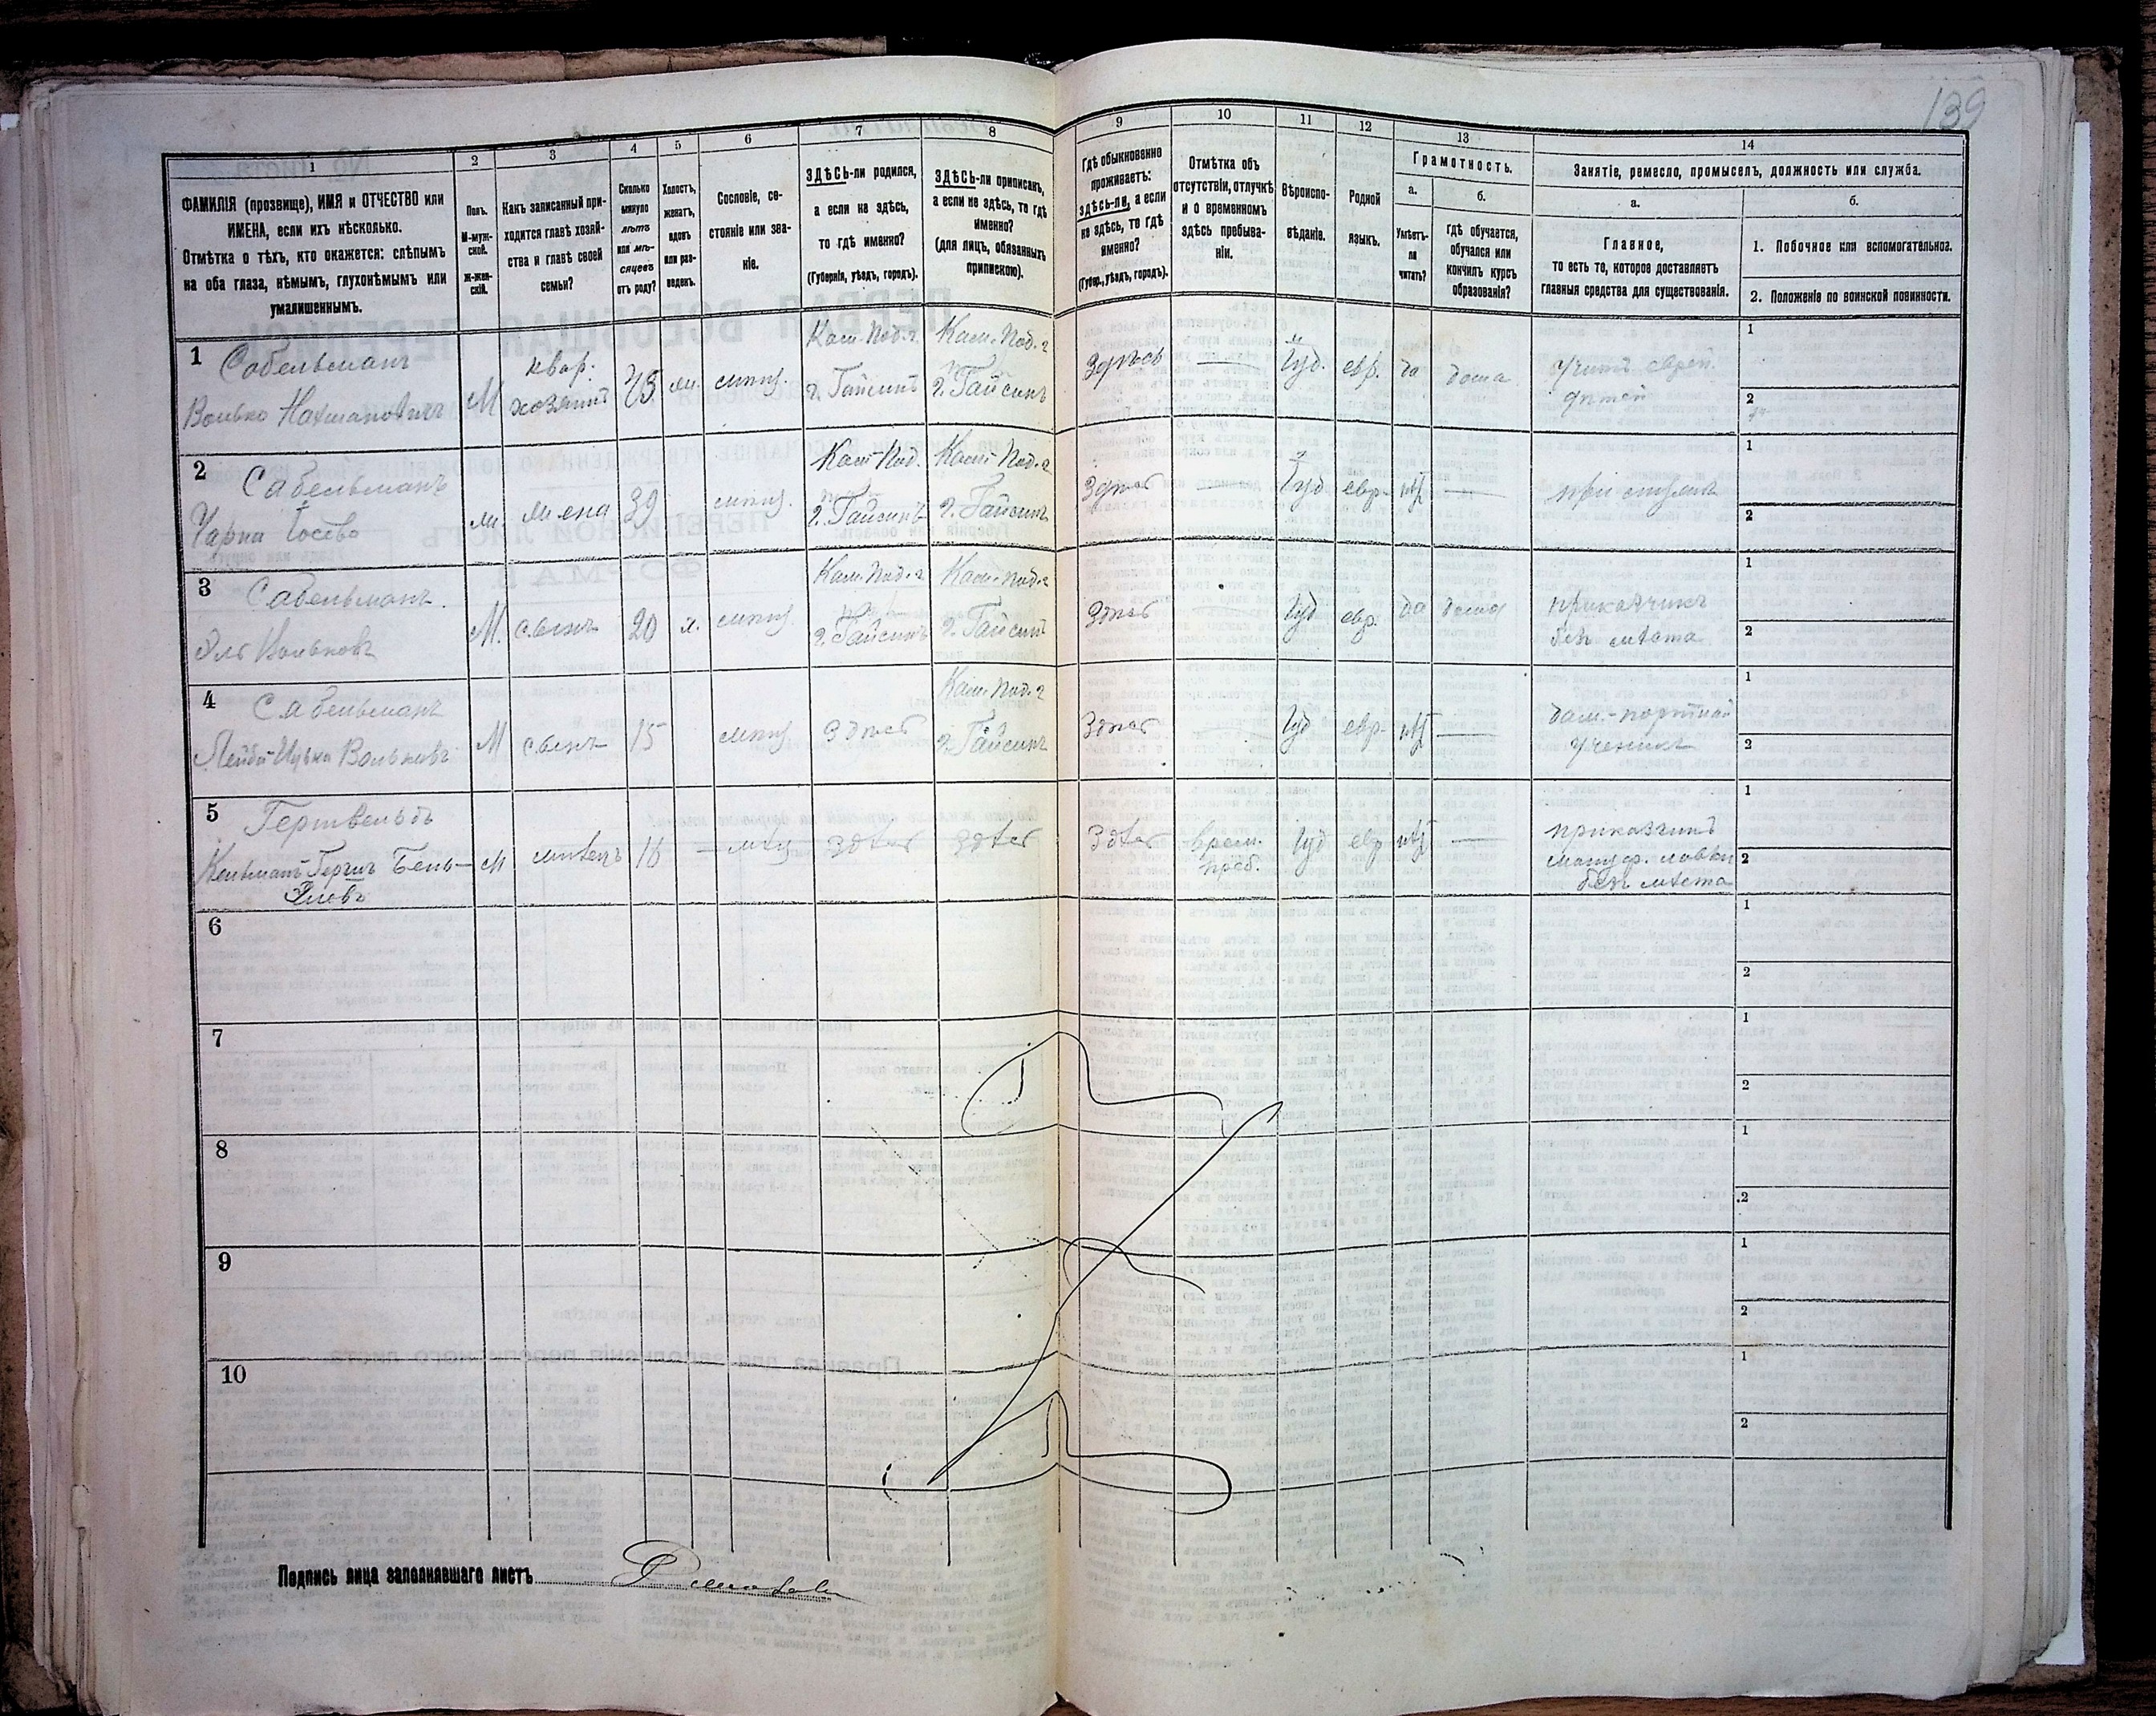 139
1 2 3 4 5 6 7 8 9 10 11 12 13 14
ФАМИЛІЯ (прозвище), ИМЯ и ОТЧЕСТВО или
ИМЕНА, если ихъ нѣсколько.
Отмѣтка о тѣхъ, кто окажется: слѣпымъ
на оба глаза, нѣмымъ, глухонѣмымъ или
умалишеннымъ.
Полъ.
М-муж-
ской.
Ж-жен-
скій.
Какъ записанный при-
ходится главѣ хозяй-
ства и главѣ своей
семьи?
Сколько
минуло
лѣтъ
или мѣ-
сяцевъ
отъ роду?
Холостъ,
женатъ,
вдовъ
или раз-
веденъ.
Сословіе, со-
стояніе или зва-
ніе.
ЗДѢСЬ-ли родился,
а если не здѣсь,
то гдѣ именно?
(Губернія, уѣздъ, городъ).
ЗДѢСЬ-ли приписанъ,
а если не здѣсь, то гдѣ
именно?
(для лицъ, обязанныхъ
припискою).
Гдѣ обыкновенно
проживаетъ:
здѣсь-ли, а если
не здѣсь, то гдѣ
именно?
(Губер., уѣздъ, городъ).
Отмѣтка объ
отсутствіи, отлучкѣ
и о временномъ
здѣсь пребыва-
ніи.
Вѣроиспо-
вѣданіе.
Родной
языкъ.
Грамотность.
а.
Умѣетъ-
ли
читать?
б.
Гдѣ обучается,
обучался или
кончилъ курсъ
образованія?
Занятіе, ремесло, промыселъ, должность или служба.
а.
Главное,
то есть то, которое доставляетъ
главныя средства для существованія.
б.
1. Побочное или вспомогательное.
2. Положеніе по воинской повинности.
1 Сабельманъ
Волько Нахмановичъ
М
квар.
хозяинъ
Кам.-Под. г
г. Гайсинъ
Кам.-Под. г
г. Гайсинъ
Здѣсь
Іуд.
евр.
да
дома
Учит. еврей.
дѣтей
1
2
2 Сабельманъ
жена 39
Кам-Под.
г. Гайсинъ
Кам-Под. г
г. Гайсинъ
Здѣсь
Іуд
евр.
нѣт
1
2
3 Сабельманъ
М. сынъ 20
Кам.-Под. г
г. Гайсинъ
Кам.-Под. г
г. Гайсинъ
Здѣсь
Іуд
евр.
да
дома
приказчикъ
безъ мѣста
1
2
4 Сабельманъ
М сынъ 15
здѣсь
Кам.-Под. г
г. Гайсинъ
Здѣсь
Іуд
евр.
нѣт
ученикъ
1
2
5
М 16
здѣсь
здѣсь
здѣсь
врем.
преб.
Іуд
евр
нѣт
приказчикъ
мануф. лавки
безъ мѣста
1
2
6
1
2
7
1
2
8
1
2
9
1
2
10
1
2
Подпись лица заполнявшаго листъ